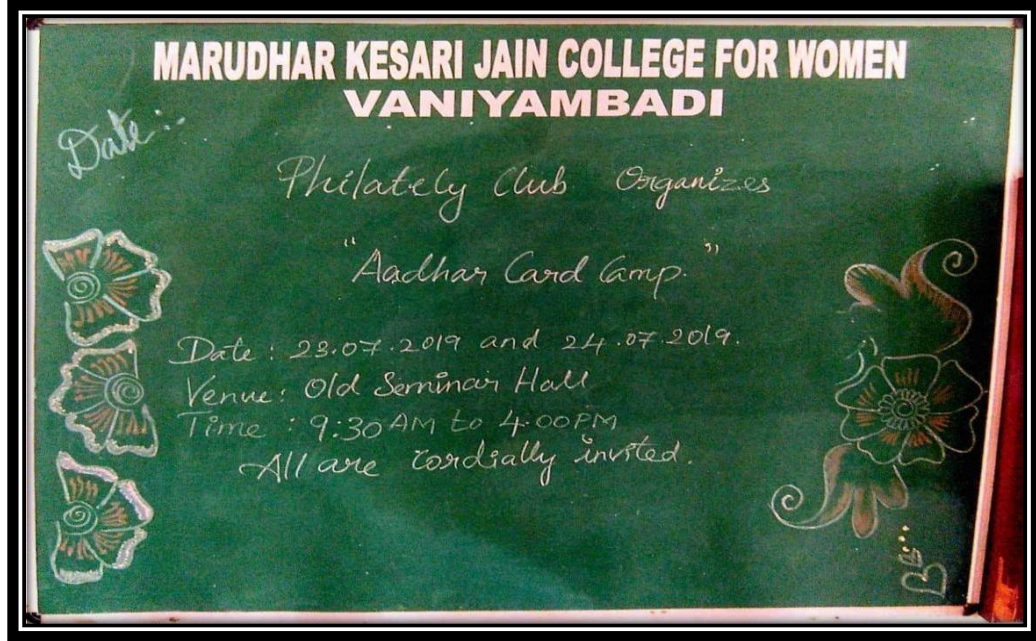 MARUDHAR KESARI JAIN COLLEGE FOR WOMEN
VANIYAMBADI
Date :-
Philately Club Organizes
"Aadhar Card Camp."
Date : 23.07.2019 and 24.07.2019.
Venue : Old Seminar Hall
Time : 9:30 AM to 4.00PM
All are cordially invited.